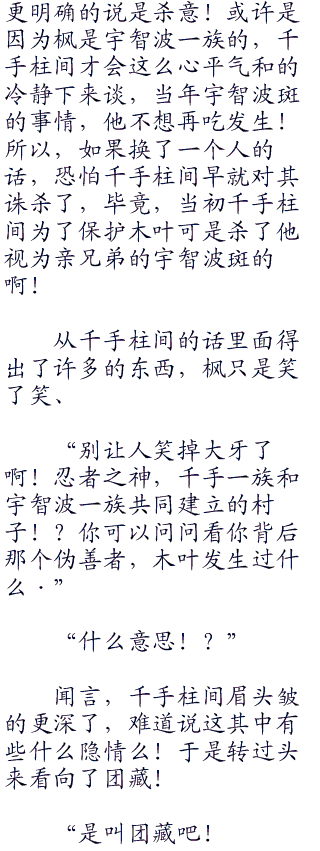 更明确的说是杀意！或许是
因为枫是宇智波一族的，千
手柱间才会这么心平气和的
冷静下来谈，当年宇智波斑
的事情，他不想再吃发生！
所以，如果换了一个人的
话，恐怕千手柱间早就对其
诛杀了，毕竟，当初千手柱
间为了保护木叶可是杀了他
视为亲兄弟的宇智波斑的
啊！
从千手柱间的话里面得
出了许多的东西，枫只是笑
了笑、
“别让人笑掉大牙了
啊！忍者之神，千手一族和
宇智波一族共同建立的村
子！？你可以问问看你背后
那个伪善者，木叶发生过什
么·”
“什么意思！？”
闻言，千手柱间眉头皱
的更深了，难道说这其中有
些什么隐情么！于是转过头
来看向了团藏！
“是叫团藏吧！